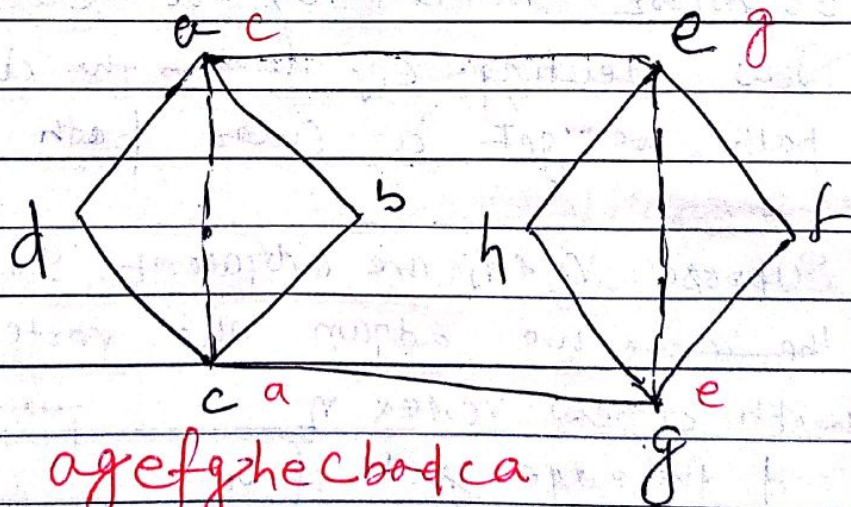 a c e g
d b h f
c a e
g
agefghecbadca